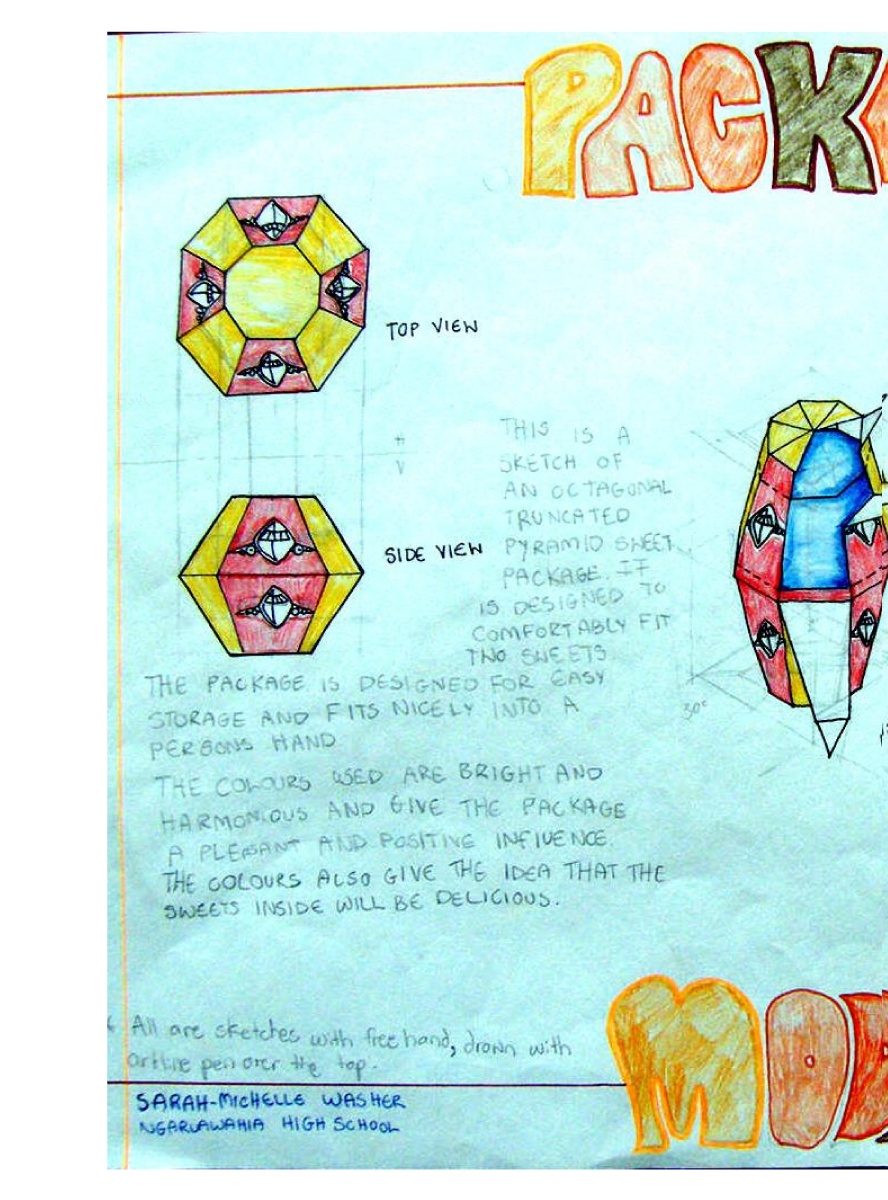 PACK
TOP VIEW
THIS IS A
SKETCH OF
AN OCTAGONAL
TRUNCATED
SIDE VIEW
PYRAMID SWEET
PACKAGE. IT
IS DESIGNED TO
COMFORTABLY FIT
TWO SWEETS
THE PACKAGE IS DESIGNED FOR EASY
STORAGE AND FITS NICELY INTO A
PERSONS HAND
30°
THE COLOURS USED ARE BRIGHT AND
HARMONIOUS AND GIVE THE PACKAGE
A PLEASANT AND POSITIVE INFLUENCE.
THE COLOURS ALSO GIVE THE IDEA THAT THE
SWEETS INSIDE WILL BE DELICIOUS.
All are sketches with free hand, drawn with
artline pen over the top.
MOD
SARAH-MICHELLE WASHER
NGARUAWAHIA HIGH SCHOOL